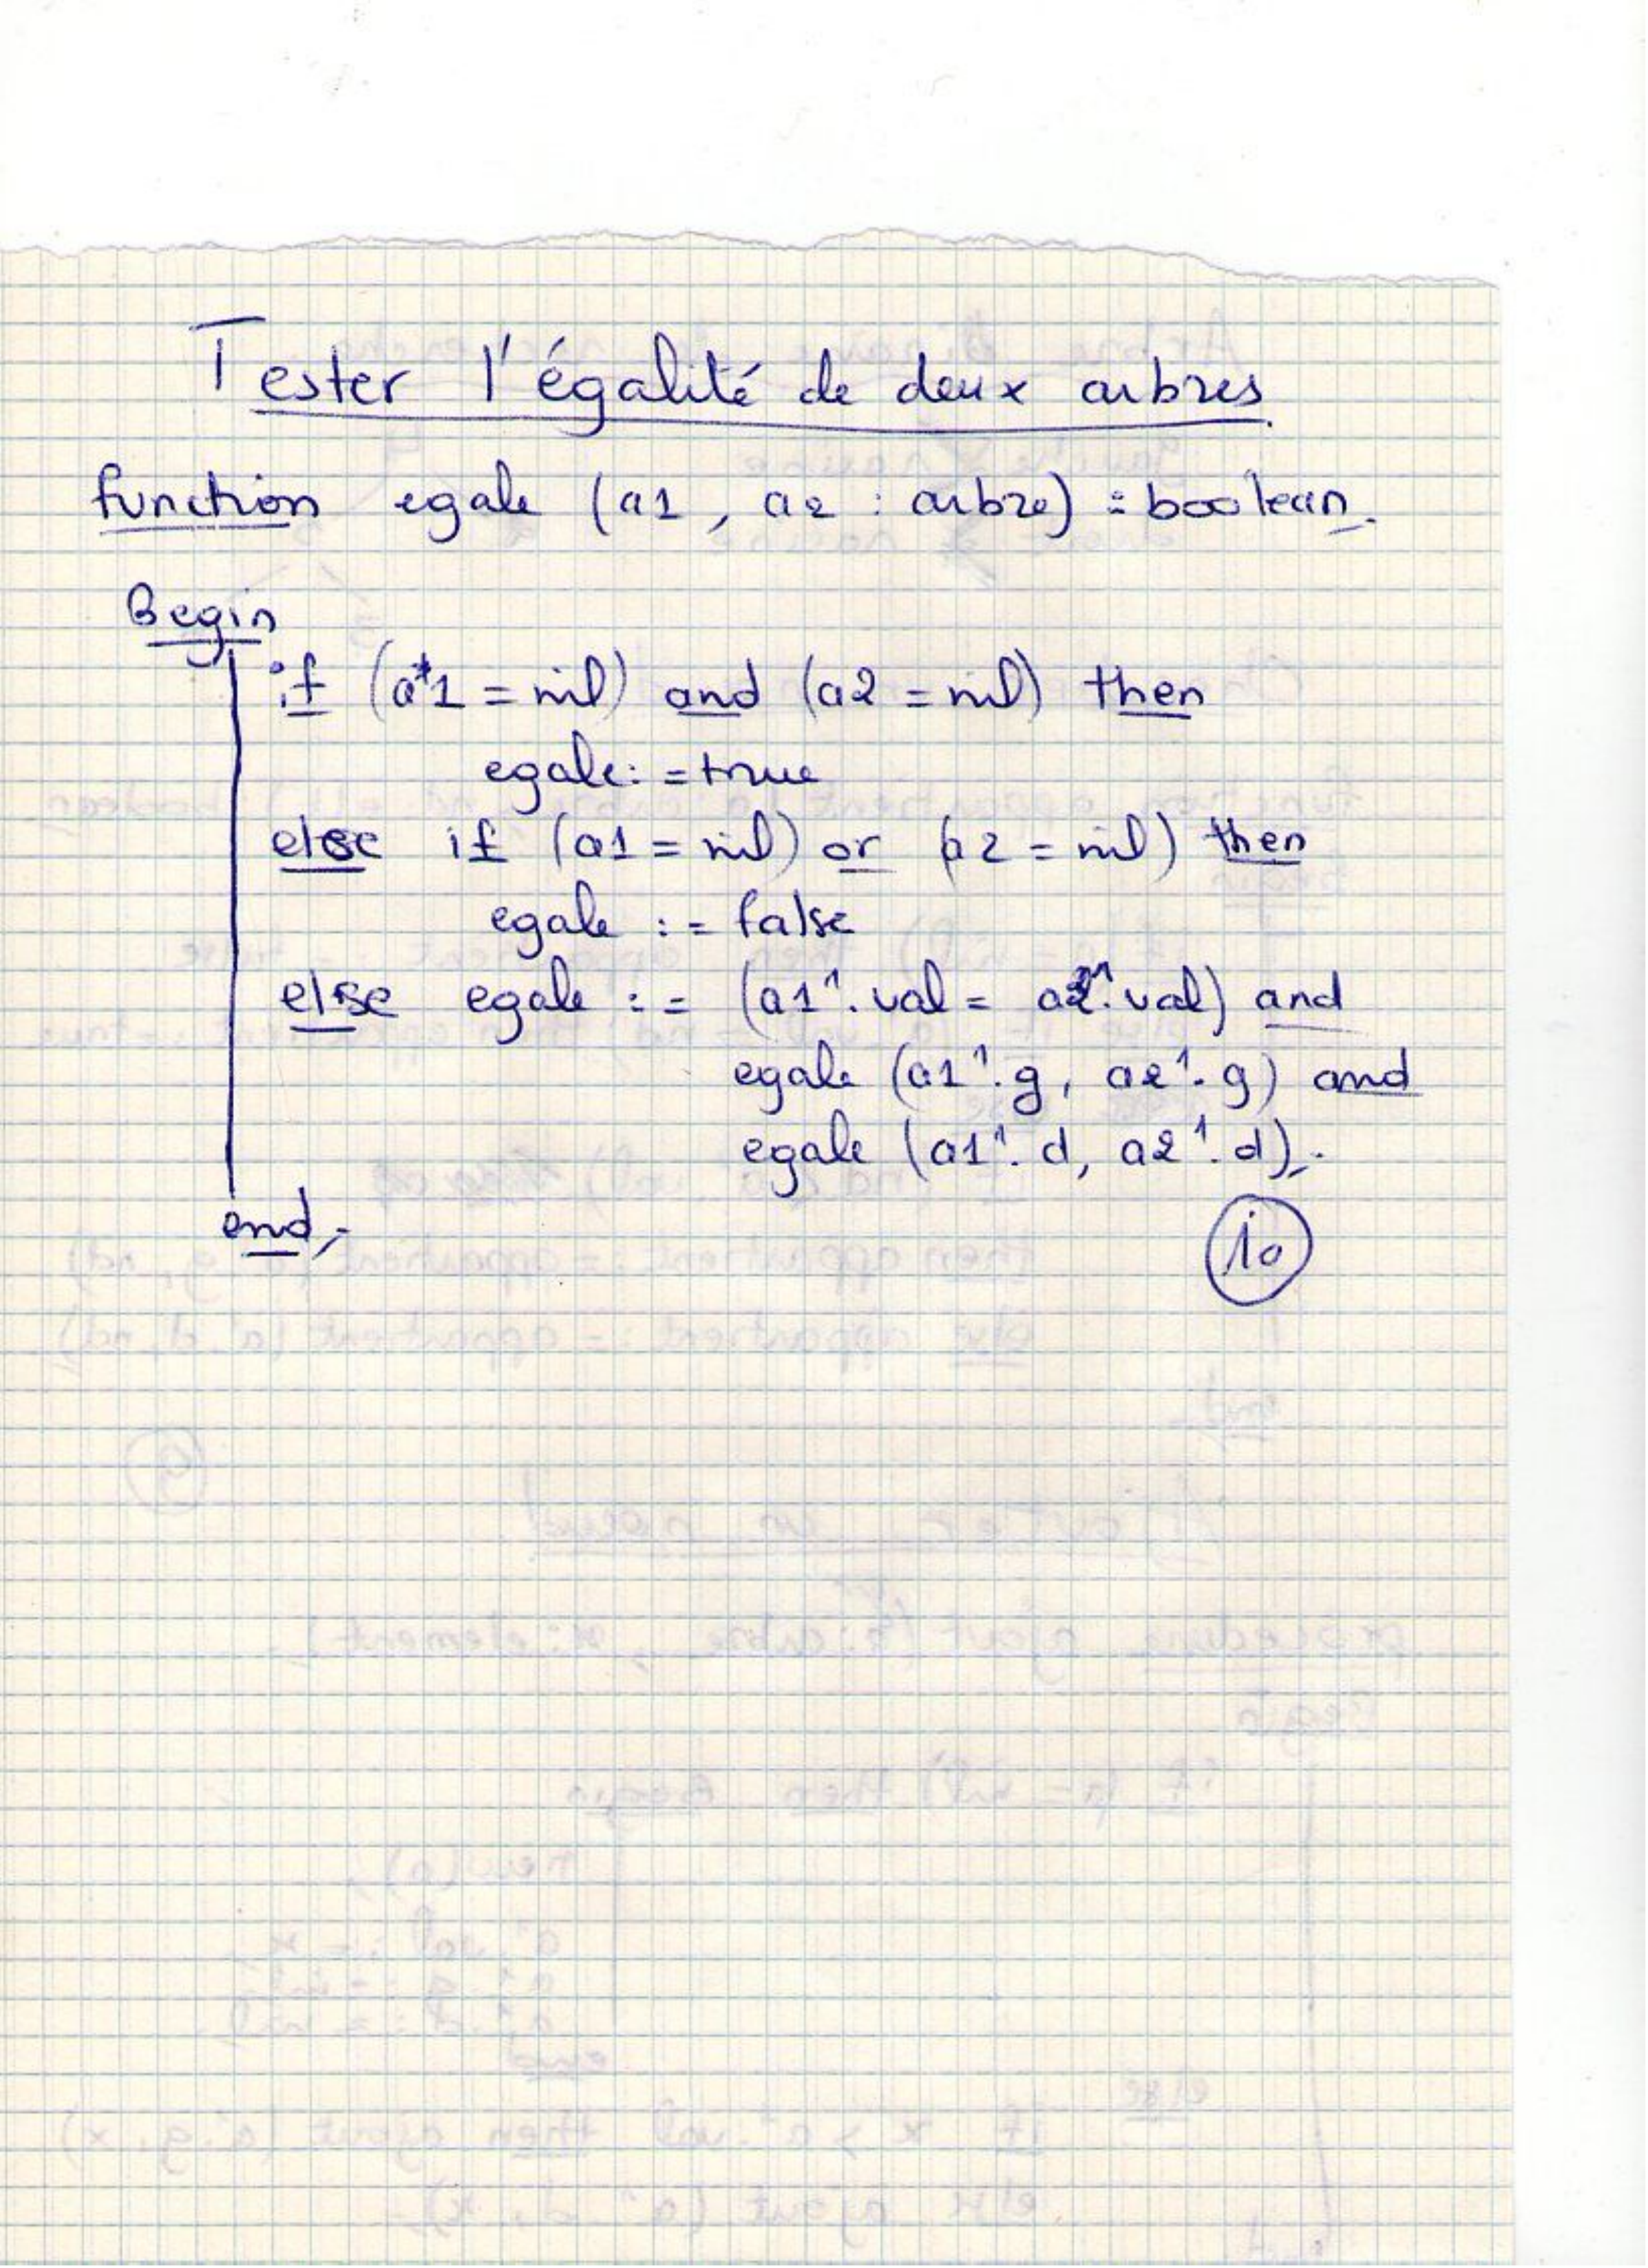 Tester l'égalité de deux arbres.
function egale (a1, a2 : arbre) : boolean.
Begin
if (a1 = nil) and (a2 = nil) then
egale := true
else if (a1 = nil) or (a2 = nil) then
egale := false
else egale := (a1^.val = a2^.val) and
egale (a1^.g, a2^.g) and
egale (a1^.d, a2^.d);
end;
10